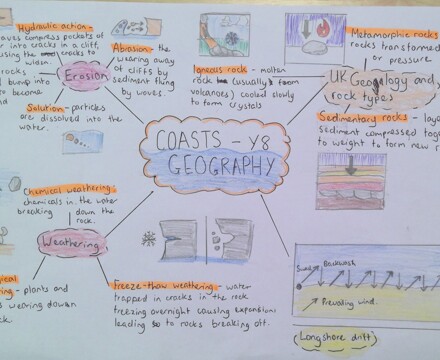 Hydraulic action -
waves compress pockets of
air into cracks in a cliff,
causing the cracks to
widen.
rocks
bump into
to become
Erosion
Abrasion - the
wearing away
of cliffs by
sediment flung
by waves.
Solution - particles
are dissolved into the
water.
Igneous rock - molten
rock (usually from
volcanoes) cooled slowly
to form crystals
Metamorphic rocks
rocks transformed
or pressure.
UK Geology and
rock types
Sedimentary rocks - laye
sediment compressed tog
to weight to form new r
COASTS - Y8
GEOGRAPHY
Chemical weathering -
chemicals in the water
breaking down the
rock.
Weathering
ring - plants and
s wearing down
ck.
Freeze-thaw weathering - water
trapped in cracks in the rock
freezing overnight causing expansion,
leading to rocks breaking off.
Swash
Backwash
Prevailing wind.
(Longshore drift)